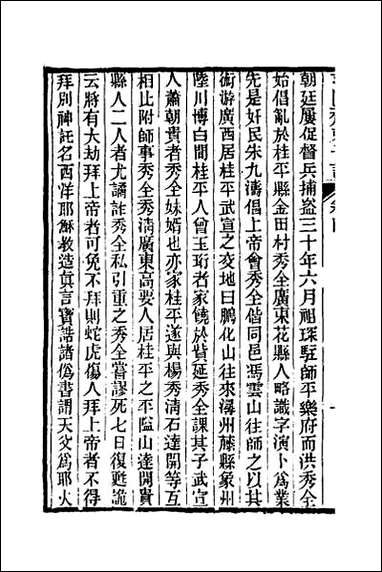 朝廷屢促督兵捕盜三十年六月祖琛駐師平樂府而洪秀全
始倡亂於桂平縣金田村秀全廣東花縣人略識字演卜爲業
先是奸民朱九濤倡上帝會秀全偕同邑馮雲山往師之以其
術游廣西居桂平武宣之交地曰鵬化山往來潯州藤縣象州
陸川博白間桂平人曾玉珩者家饒於貲延秀全課其子武宣
人蕭朝貴者秀全妹婿也亦家桂平遂與楊秀清石達開等互
相比附師事秀全秀清廣東高要人居桂平之平隘山達開貴
縣人二人者尤譎詐秀全私引重之秀全嘗謬死七日復甦詭
云將有大劫拜上帝者可免不拜則蛇虎傷人拜上帝者不得
拜別神託名西洋耶穌教造眞言寶誥諸僞書謂天父爲耶火